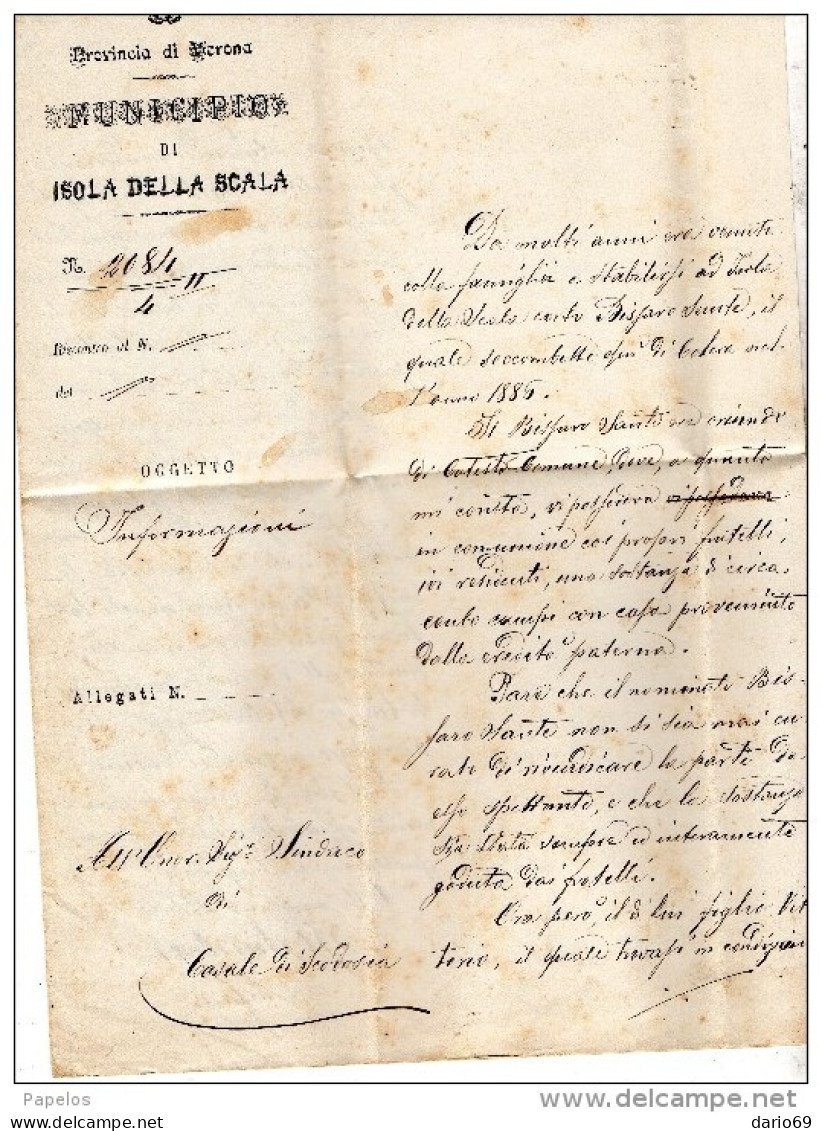 Provincia di Verona
MUNICIPIO
DI
ISOLA DELLA SCALA
N. 2084
4 II
Riscontro al N.
del
OGGETTO
Informazioni
Allegati N.
All'Onor. Sig.r Sindaco
di
Casale di Scodosia
Da molti anni era venuto
colla famiglia e stabilirsi ad Isola
della Scala certo Bissaro Sante, il
quale soccombette di Colera nel
l'anno 1886.
Il Bissaro Sante era oriundo
di Cotesto Comune, dove, a quanto
mi consta, vi possedeva vi possedeva
in comunione coi propri fratelli,
ivi residenti, una sostanza di circa
cento campi con casa proveniente
dalla eredità paterna.
Pare che il nominato Bis-
saro Sante non si sia mai cu
rato di rivendicare la parte da
esso spettante, e che la sostanza
sia stata sempre ed interamente
goduta dai fratelli.
Ora però, il di lui figlio Vit
torio, il quale trovasi in condizioni
Papelos
delcampe.net
dario69